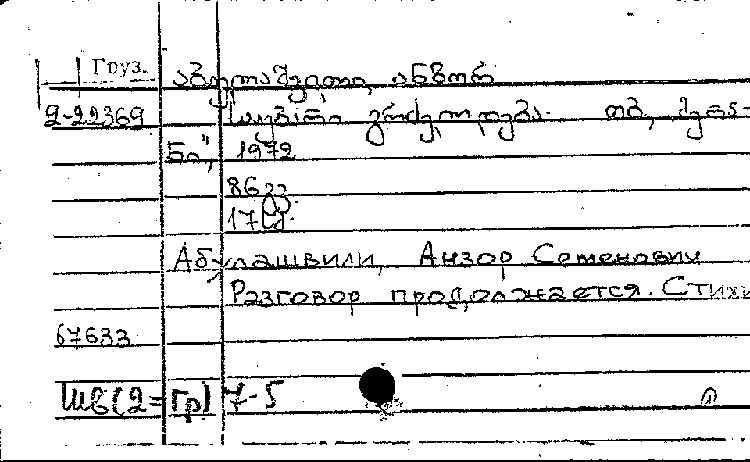 Груз.
აბულაშვილი, ანზორ
2-22369 საუბარი გრძელდება. თბ., „მერა-
ნი“, 1972
86 გვ.
17 სმ.
Абулашвили, Анзор Семенович
Разговор продолжается. Стихи
67633
Шв(2=Гр) 7-5